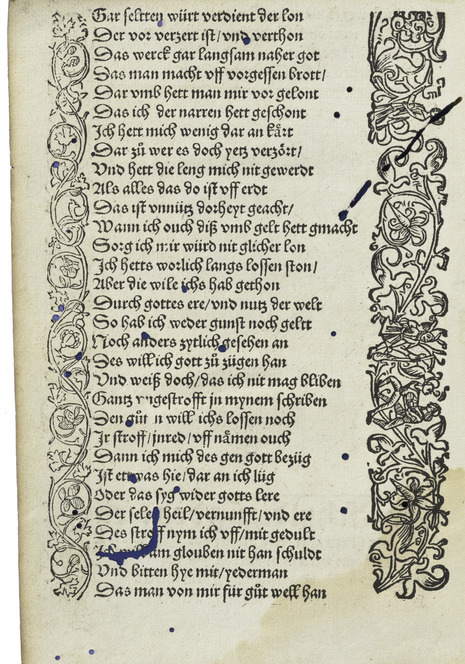 Gar seltten würt verdient der lon
Der vor verzert ist/ vnd verthon
Das werck gar langsam naher got
Das man macht vff vorgessen brott/
Dar vmb hett man mir vor gelont
Das ich der narren hett geschont
Ich hett mich wenig dar an kårt
Dar zů wer es doch yetz verzört/
Vnd hett die leng mich nit gewerdt
Als alles das do ist vff erdt
Das ist vnnütz dorheyt geacht/
Wann ich ouch diß vmb gelt hett gmacht
Sorg ich mir würd nit glicher lon
Ich hetts worlich langs lossen ston/
Aber die wile ichs hab gethon
Durch gottes ere/ vnd nutz der welt
So hab ich weder gunst noch geltt
Noch anders zytlich gesehen an
Des will ich gott zů zügen han
Vnd weiß doch/ das ich nit mag bliben
Gantz vngestrofft jn mynem schriben
Den gůten will ichs lossen noch
Ir stroff/ jnred/ vff nåmen ouch
Dann ich mich des gen gott bezüg
Ist ettwas hie/ dar an ich lüg
Oder das syg wider gotts lere
Der selen heil/ vernunfft/ vnd ere
Des stroff nym ich vff/ mit gedult
Ich will am glouben nit han schuldt
Vnd bitten hye mit/ yederman
Das man von mir für gůt well han